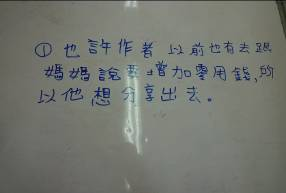 ① 也許作者以前也有去跟
媽媽說要增加零用錢,所
以他想分享出去。